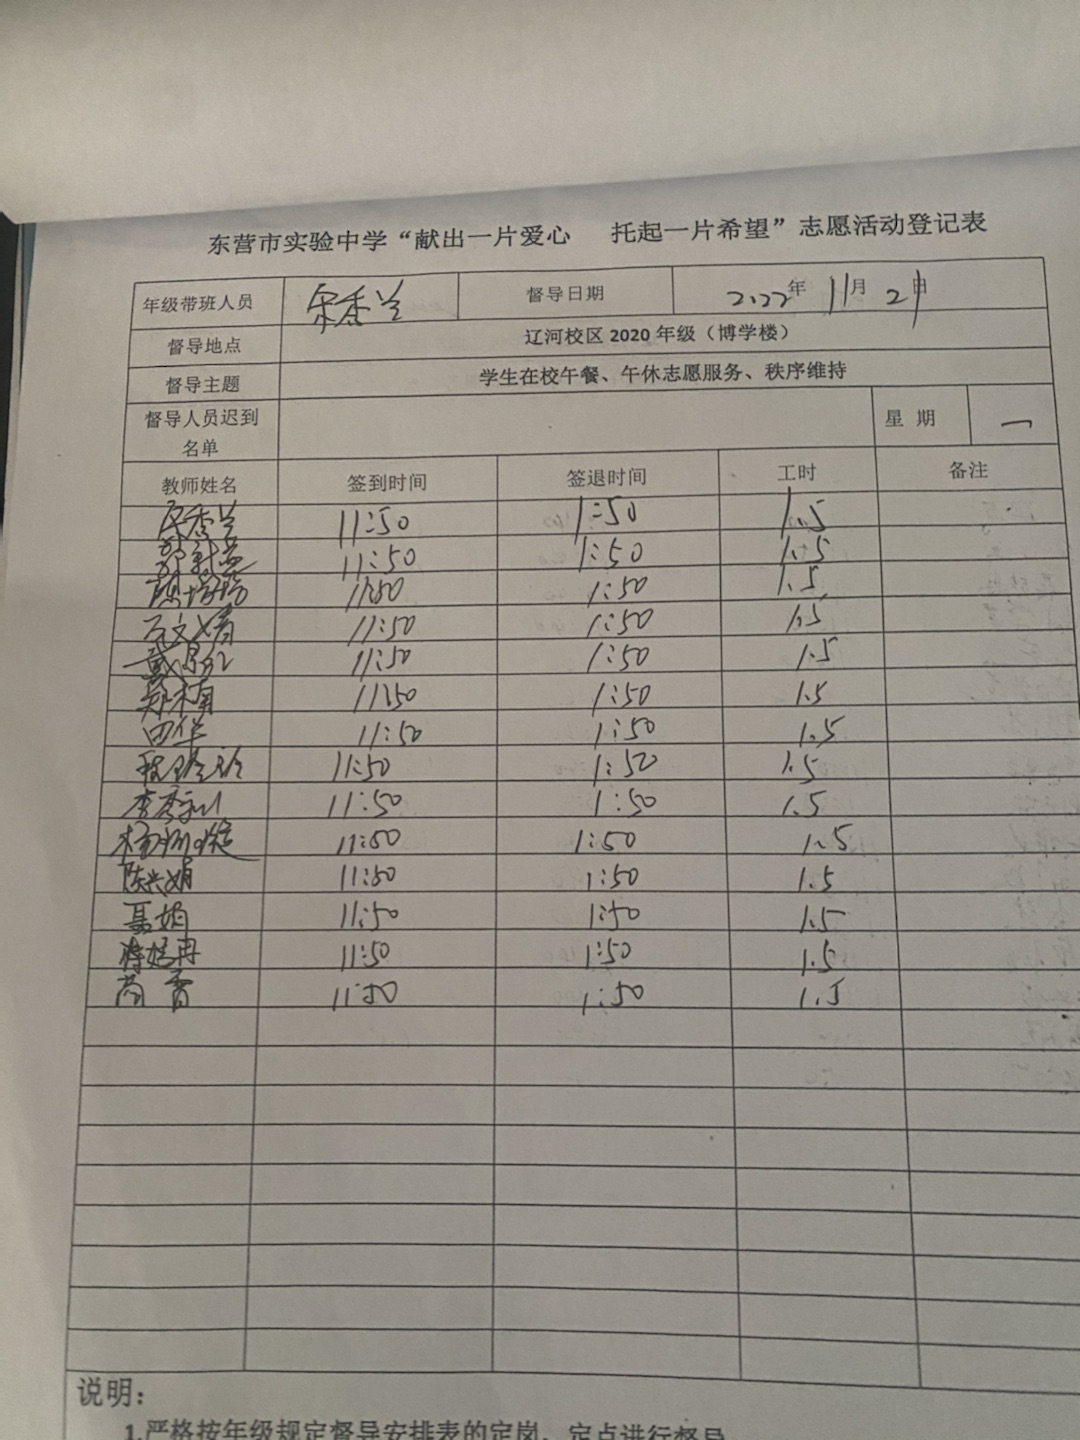 东营市实验中学“献出一片爱心 托起一片希望”志愿活动登记表
年级带班人员 宋香兰 督导日期 2022年 11月 21日
督导地点 辽河校区 2020 年级（博学楼）
督导主题 学生在校午餐、午休志愿服务、秩序维持
督导人员迟到名单 星 期 一
教师姓名 签到时间 签退时间 工时 备注
宋香兰 11:50 1:50 1.5
11:50 1:50 1.5
11:50 1:50 1.5
11:50 1:50 1.5
11:50 1:50 1.5
郑楠 11:50 1:50 1.5
田华 11:50 1:50 1.5
程玲玲 11:50 1:50 1.5
11:50 1:50 1.5
11:50 1:50 1.5
陈兴娟 11:50 1:50 1.5
聂娟 11:50 1:50 1.5
11:50 1:50 1.5
11:50 1:50 1.5
说明：
1.严格按年级规定督导安排表的定岗、定点进行督导